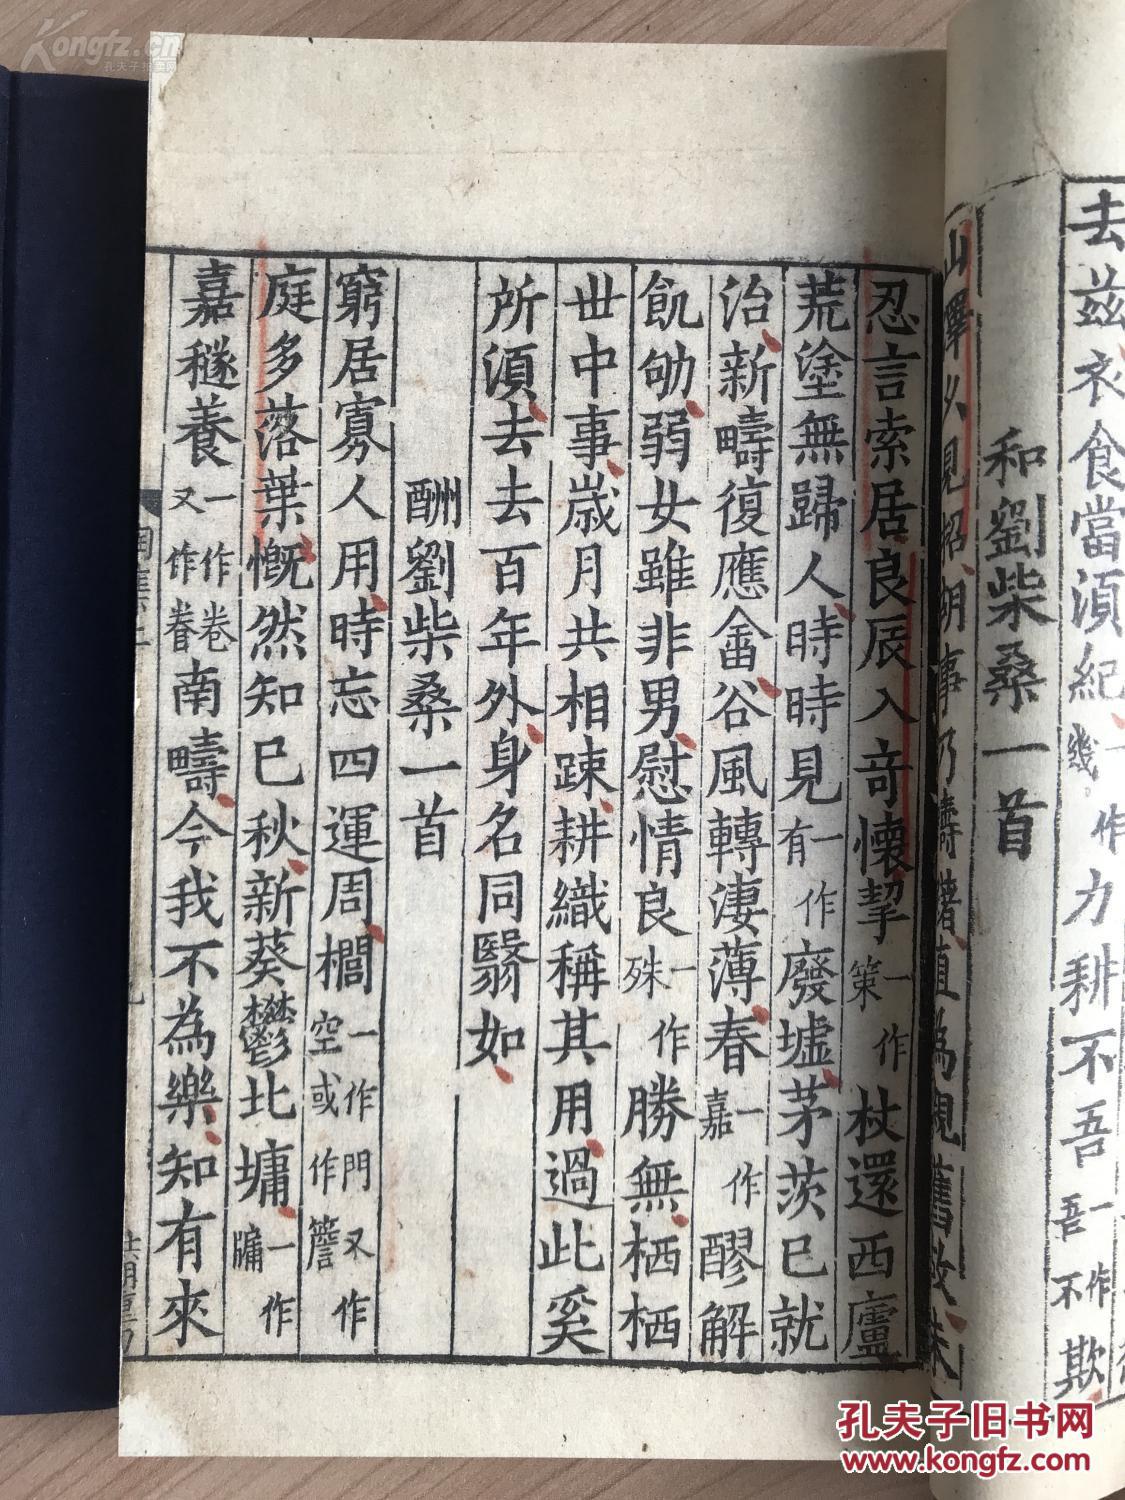 去兹衣食當湏紀一作幾力耕不吾一作吾不欺
和劉柴桑一首
山澤久見招胡事乃躊躇直為親舊故未
忍言索居良辰入竒懷挈一作策杖還西廬
荒塗無歸人時時見一作有廢墟茅茨已就
治新疇復應畬谷風轉淒薄春一作嘉醪解
飢劬弱女雖非男慰情良一作殊勝無栖栖
丗中事歲月共相踈耕織稱其用過此奚
所湏去去百年外身名同翳如
酬劉柴桑一首
窮居寡人用時忘四運周櫚一作門又作空或作簷
庭多落葉慨然知已秋新葵鬱北墉一作牖
嘉穟養一作卷又作眷南疇今我不為樂知有來
Kongfz.cn
孔夫子拍卖网
孔夫子旧书网
www.kongfz.com